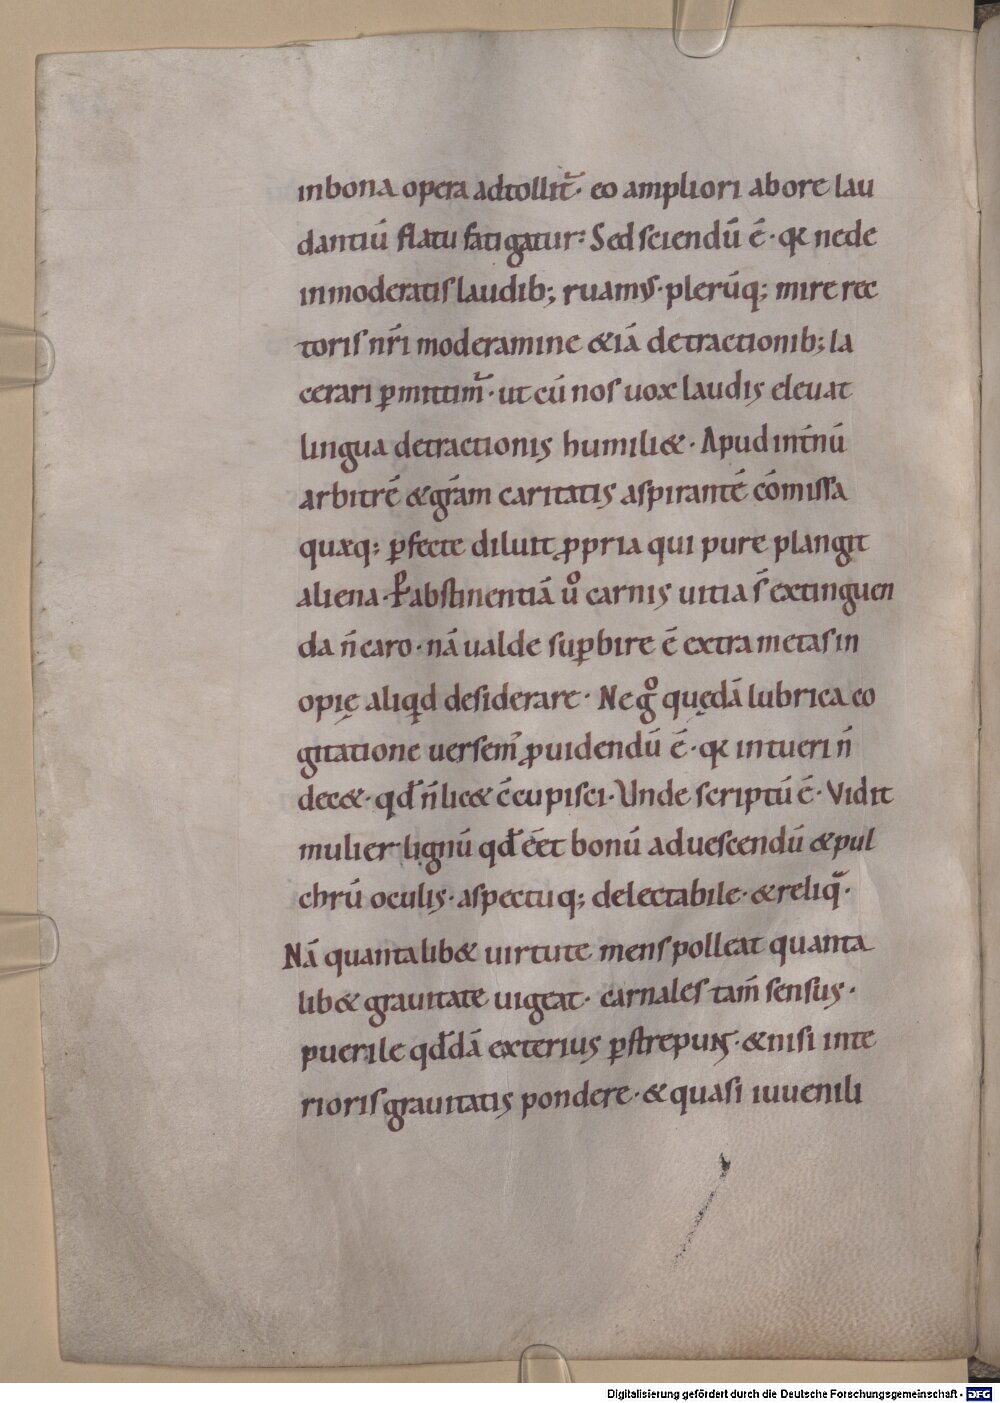 inbona opera adtollit᷑· eo ampliori abore lau
dantiū flatu fatigatur: Sed sciendū ē· qƙ nede
inmoderatis laudib; ruamꝰ· plerūq; mire rec
toris nr̄i moderamine &iā detractionib; la
cerari ꝑmittim᷑· ut cū nos uox laudis eleuat
lingua detractionis humili&· Apud int̄nū
arbitrē &grām caritatis aspirantē cōmissa
quæq; ꝑfecte diluit ꝓpria qui pure plangit
aliena· P̱ abstinentiā uͦ carnis uitia s̄ extinguen
da n̄ caro· nā ualde suꝑbire ē extra metas in
opię aliqd desiderare· Ne gͦ quędā lubrica co
gitatione uersem᷑ ꝓuidendū ē· qƙ intueri n̄
dec&· qđ n̄ lic& c̄cupisci· Unde scriptū ē· Vidit
mulier lignū qđ eēt bonū aduescendū &pul
chrū oculis· aspectuq; delectabile· &reliq̄·
Nā quantalib& uirtute mens polleat quanta
lib& grauitate uigeat· carnales tam̄ sensus·
puerile qđdā exterius ꝑstrepunt· &nisi inte
rioris grauitatis pondere· &quasi iuuenili
Digitalisierung gefördert durch die Deutsche Forschungsgemeinschaft - DFG